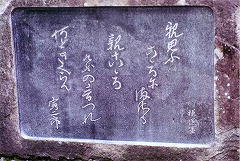 親思ふ
こゝろにまさる
親こゝろ
けふの音つれ
何ときくらん
寅二郎